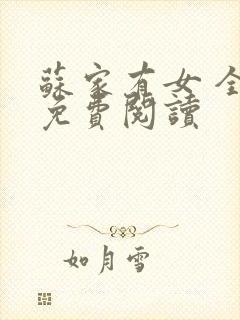 蘇家有女 全
免費閱讀
如月雪